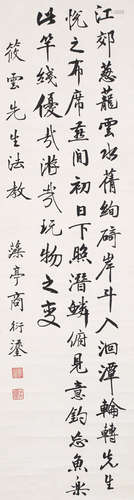 江郊蔥蘢雲水蒨絢碕岸斗入洄潭輪轉先生
悅之布席閒燕初日下照潛鱗俯見意釣忘魚樂
此竿綫優哉游哉玩物之變
筱雲先生法教
藻亭商衍鎏